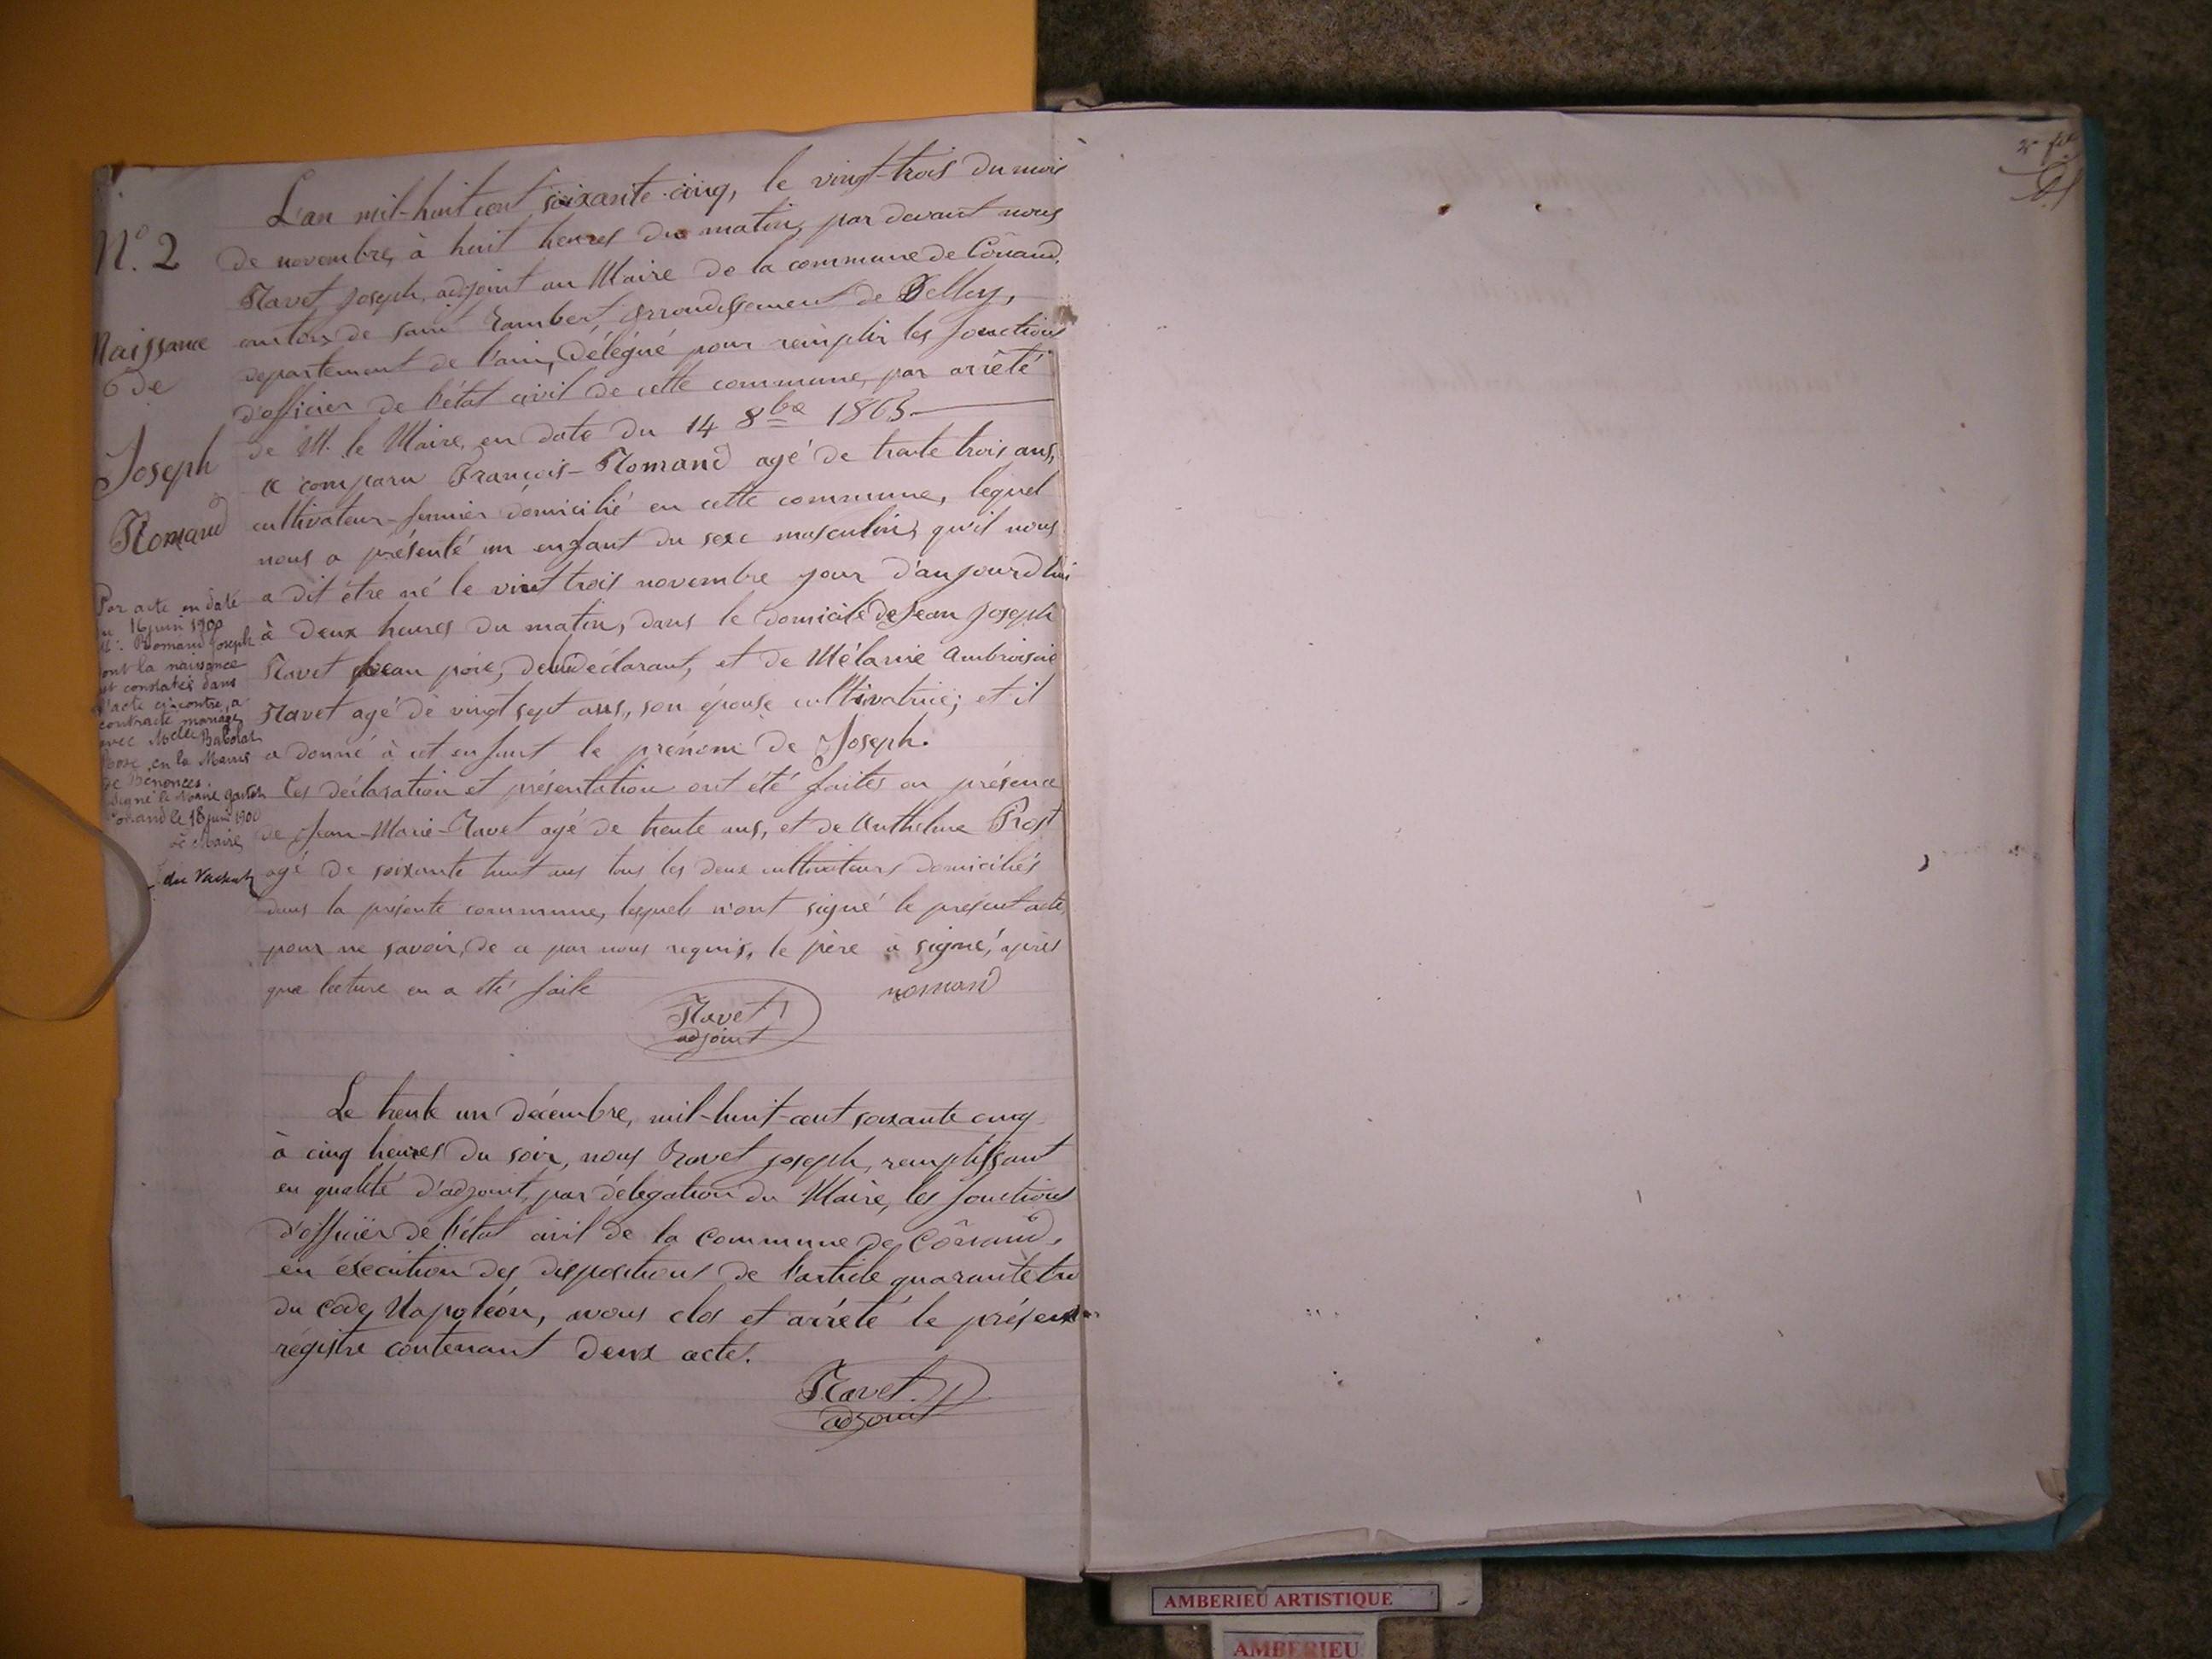 N.º 2
Naissance
de
Joseph
Romand
Par acte en date
du 16 juin 1900
Mr. Romand Joseph
dont la naissance
est constatée dans
l'acte ci-contre, a
contracté mariage
avec Melle Babolat
Rose, en la Mairie
de Bénonces.
Signé le Maire
le 18 juin 1900
Le Maire
L'an mil-huit cent soixante-cinq, le vingt-trois du mois
de novembre, à huit heures du matin, par devant nous
Ravet Joseph, adjoint au Maire de la commune de Conand,
canton de saint Rambert, arrondissement de Belley,
departement de l'ain, délégué pour remplir les fonctions
d'officier de l'état civil de cette commune, par arrêté
de M. le Maire, en date du 14 8bre 1865
a comparu François-Romand agé de trente trois ans,
cultivateur-fermier domicilié en cette commune, lequel
nous a présenté un enfant du sexe masculin, qu'il nous
a dit être né le vint trois novembre jour d'aujourd'hui
à deux heures du matin, dans le domicile de Jean Joseph
Ravet beau père, de lui déclarant, et de Mélanie Ambroisine
Ravet agé de vingt sept ans, son épouse cultivatrice; et il
a donné à cet enfant le prénom de Joseph.
Ces déclaration et présentation ont été faites en présence
de Jean-Marie-Ravet agé de trente ans, et de Anthelme Prost
agé de soixante huit ans tous les deux cultivateurs domiciliés
dans la présente commune, lesquels n'ont signé le présent acte,
pour ne savoir, de ce par nous requis, le père à signé, après
que lecture en a été faite
romand
Ravet
adjoint
Le trente un décembre, mil-huit-cent soixante cinq
à cinq heures du soir, nous Ravet joseph, remplissant
en qualité d'adjoint, par délégation du Maire, les fonctions
d'officier de l'état civil de la Commune de Conand,
en éxécution des dispositions de l'article quarante tro
du code Napoléon, avons clos et arrêté le présent
régistre contenant deux acte.
Ravet
adjoint
AMBERIEU ARTISTIQUE
AMBERIEU